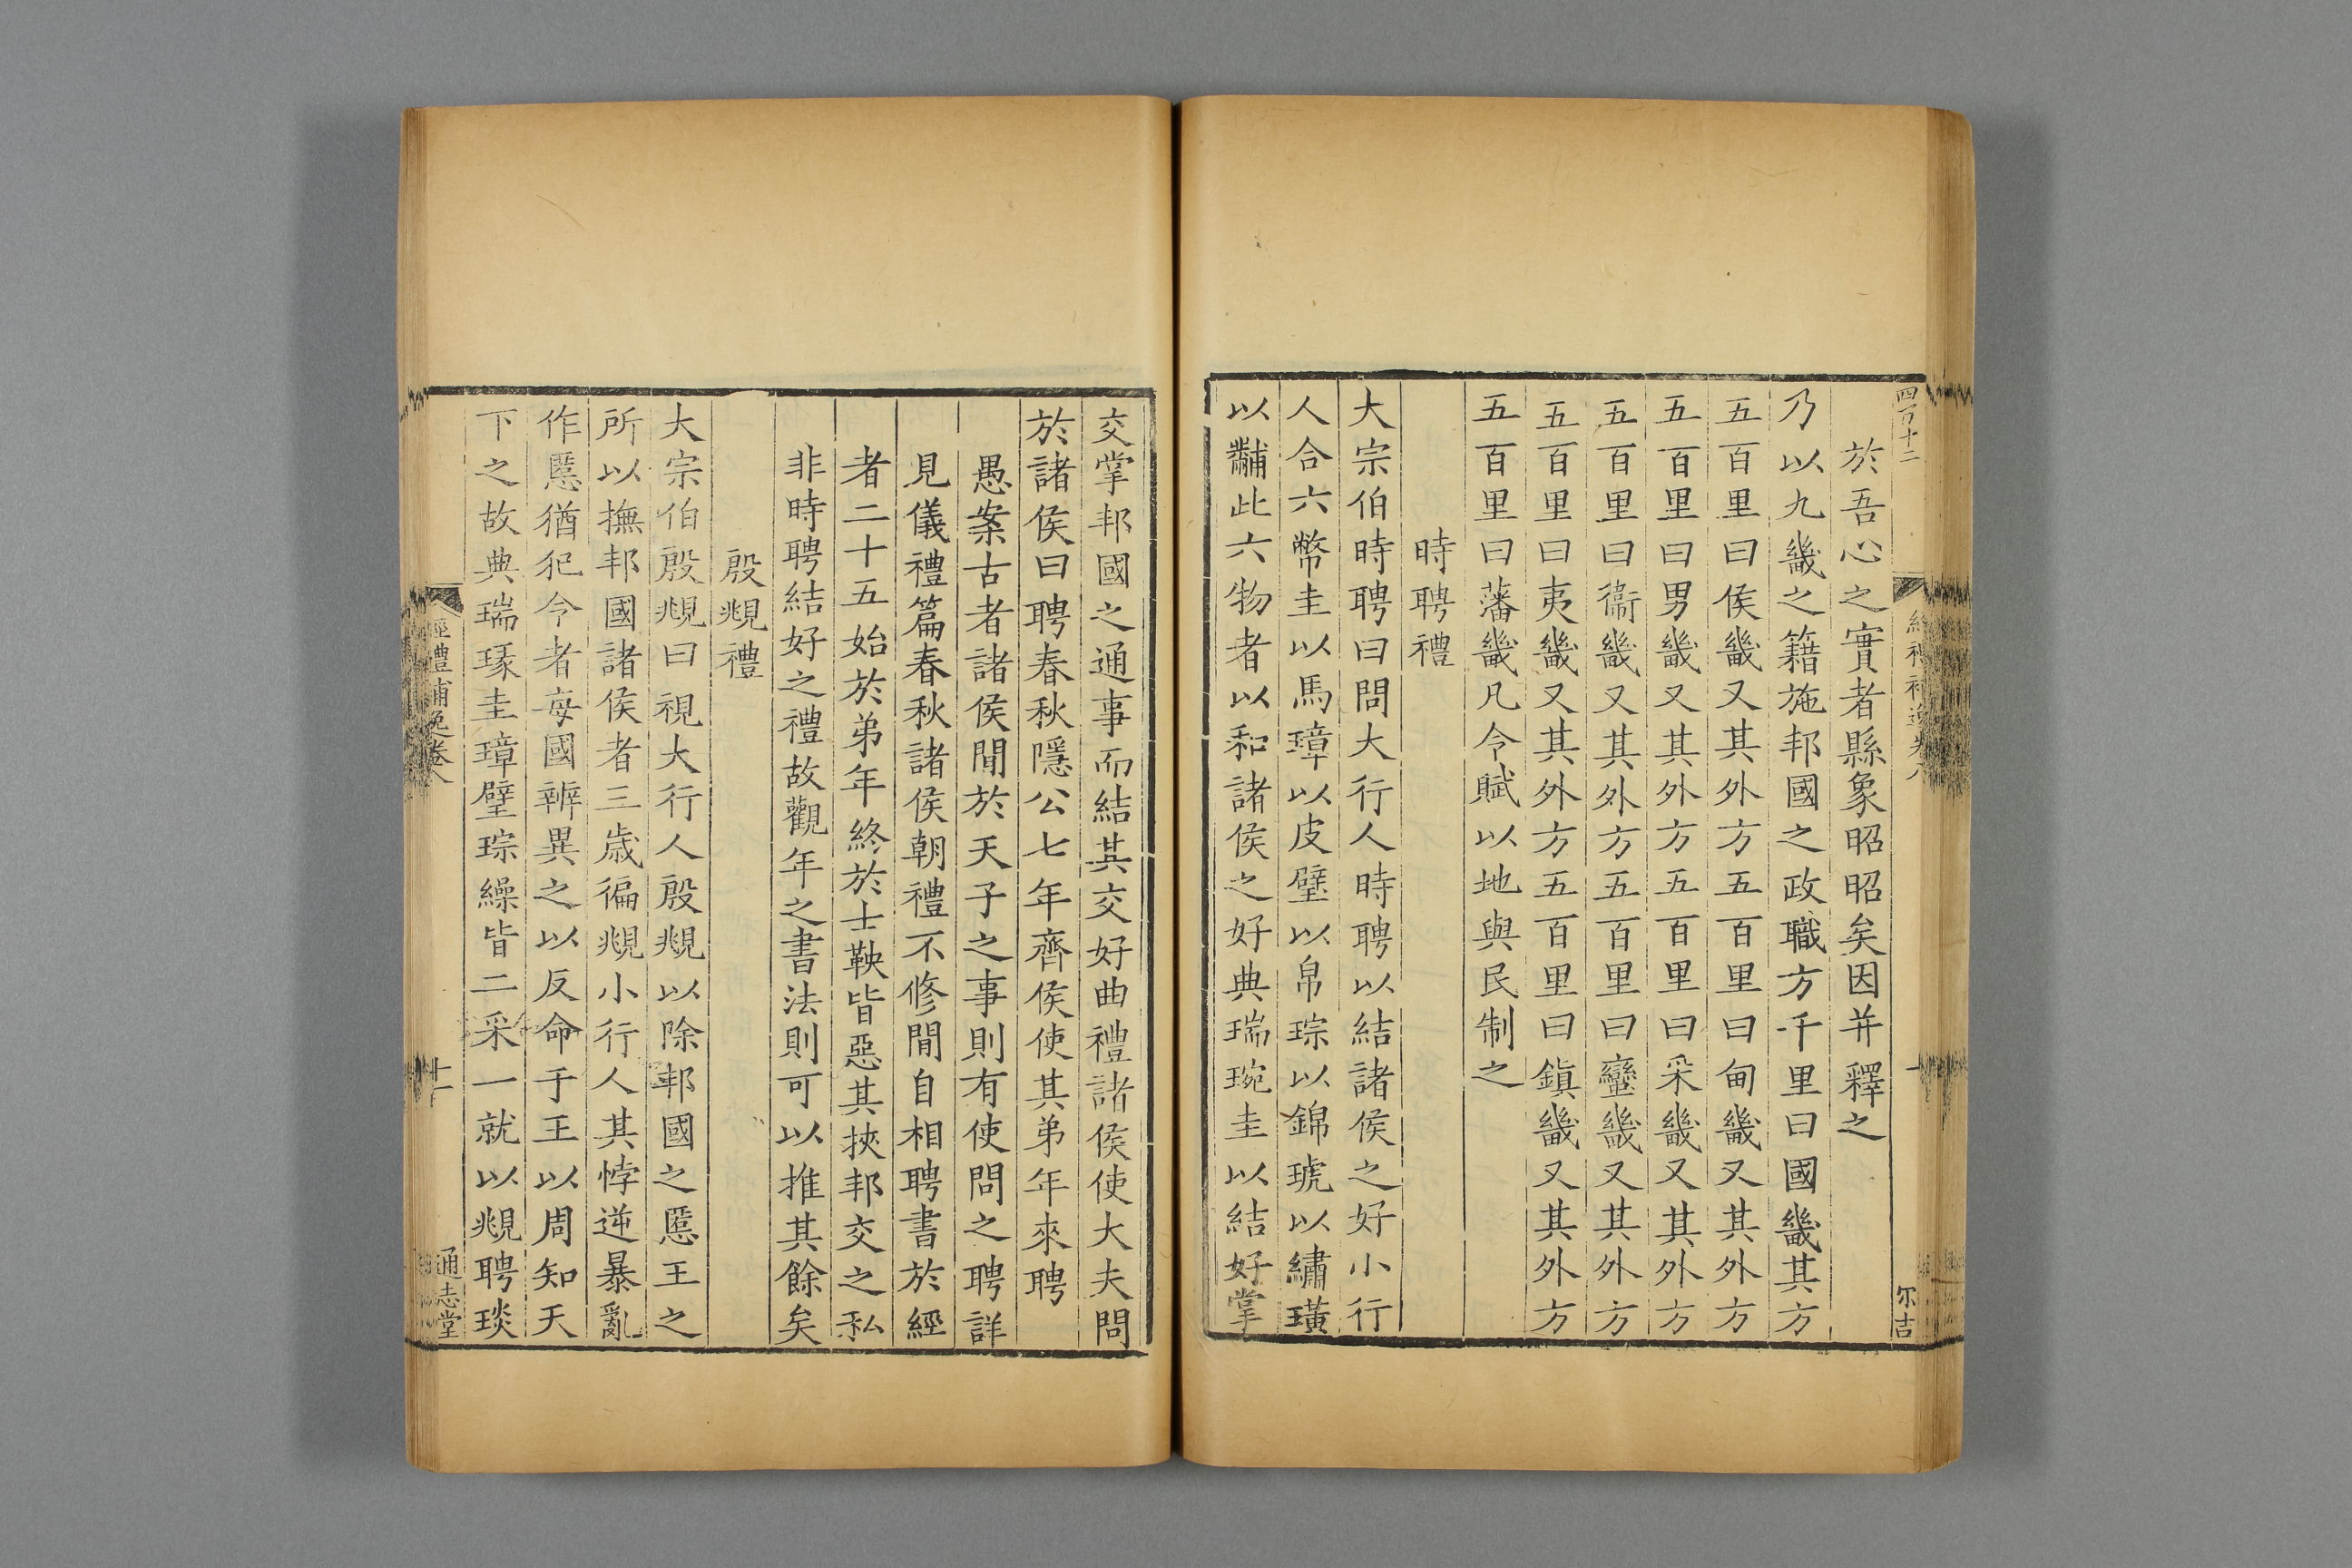 四百十二
於吾心之實者縣象昭昭矣因并釋之
乃以九畿之籍施邦國之政職方千里曰國畿其方
五百里曰侯畿又其外方五百里曰甸畿又其外方
五百里曰男畿又其外方五百里曰采畿又其外方
五百里曰衞畿又其外方五百里曰蠻畿又其外方
五百里曰夷畿又其外方五百里曰鎭畿又其外方
五百里曰藩畿凡令賦以地與民制之
時聘禮
大宗伯時聘曰問大行人時聘以結諸侯之好小行
人合六幣圭以馬璋以皮璧以帛琮以錦琥以繡璜
以黼此六物者以和諸侯之好典瑞琬圭以結好掌
尔吉
交掌邦國之通事而結其交好曲禮諸侯使大夫問
於諸侯曰聘春秋隱公七年齊侯使其弟年來聘
愚案古者諸侯閒於天子之事則有使問之聘詳
見儀禮篇春秋諸侯朝禮不修閒自相聘書於經
者二十五始於弟年終於士鞅皆惡其挾邦交之私
非時聘結好之禮故觀年之書法則可以推其餘矣
殷覜禮
大宗伯殷覜曰視大行人殷覜以除邦國之慝王之
所以撫邦國諸侯者三歲徧覜小行人其悖逆暴亂
作慝猶犯令者每國辨異之以反命于王以周知天
下之故典瑞瑑圭璋璧琮繅皆二采一就以覜聘琰
經禮補逸卷八
十一
通志堂